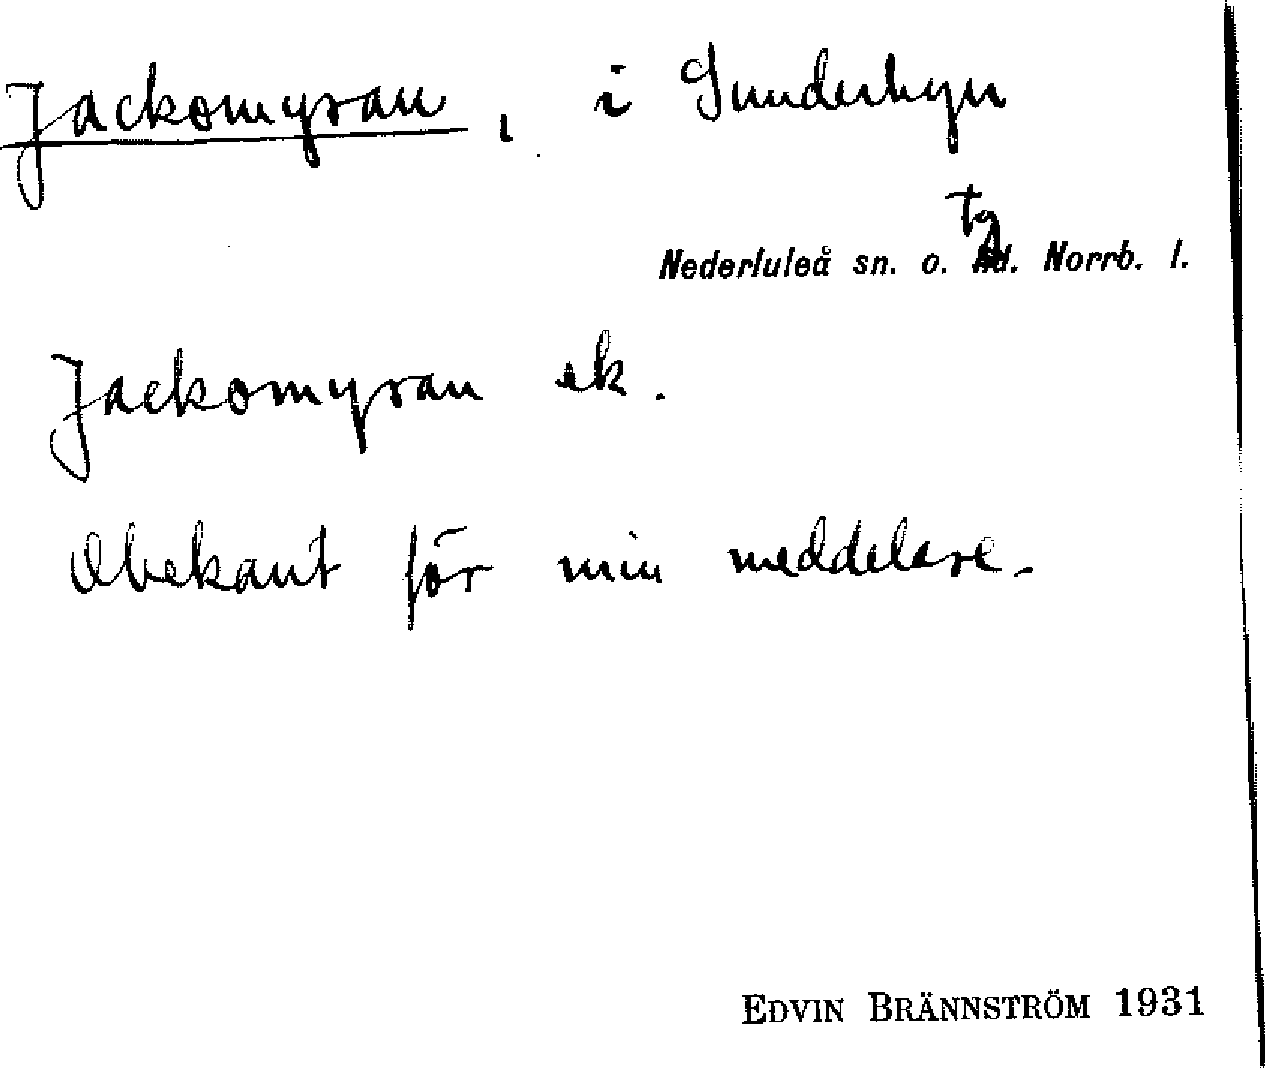 Jackomyran, i Sunderbyn
Nederluleå sn. o. tg. Norrb. l.
Jackomyran ek.
Obekant för min meddelare.
EDVIN BRÄNNSTRÖM 1931